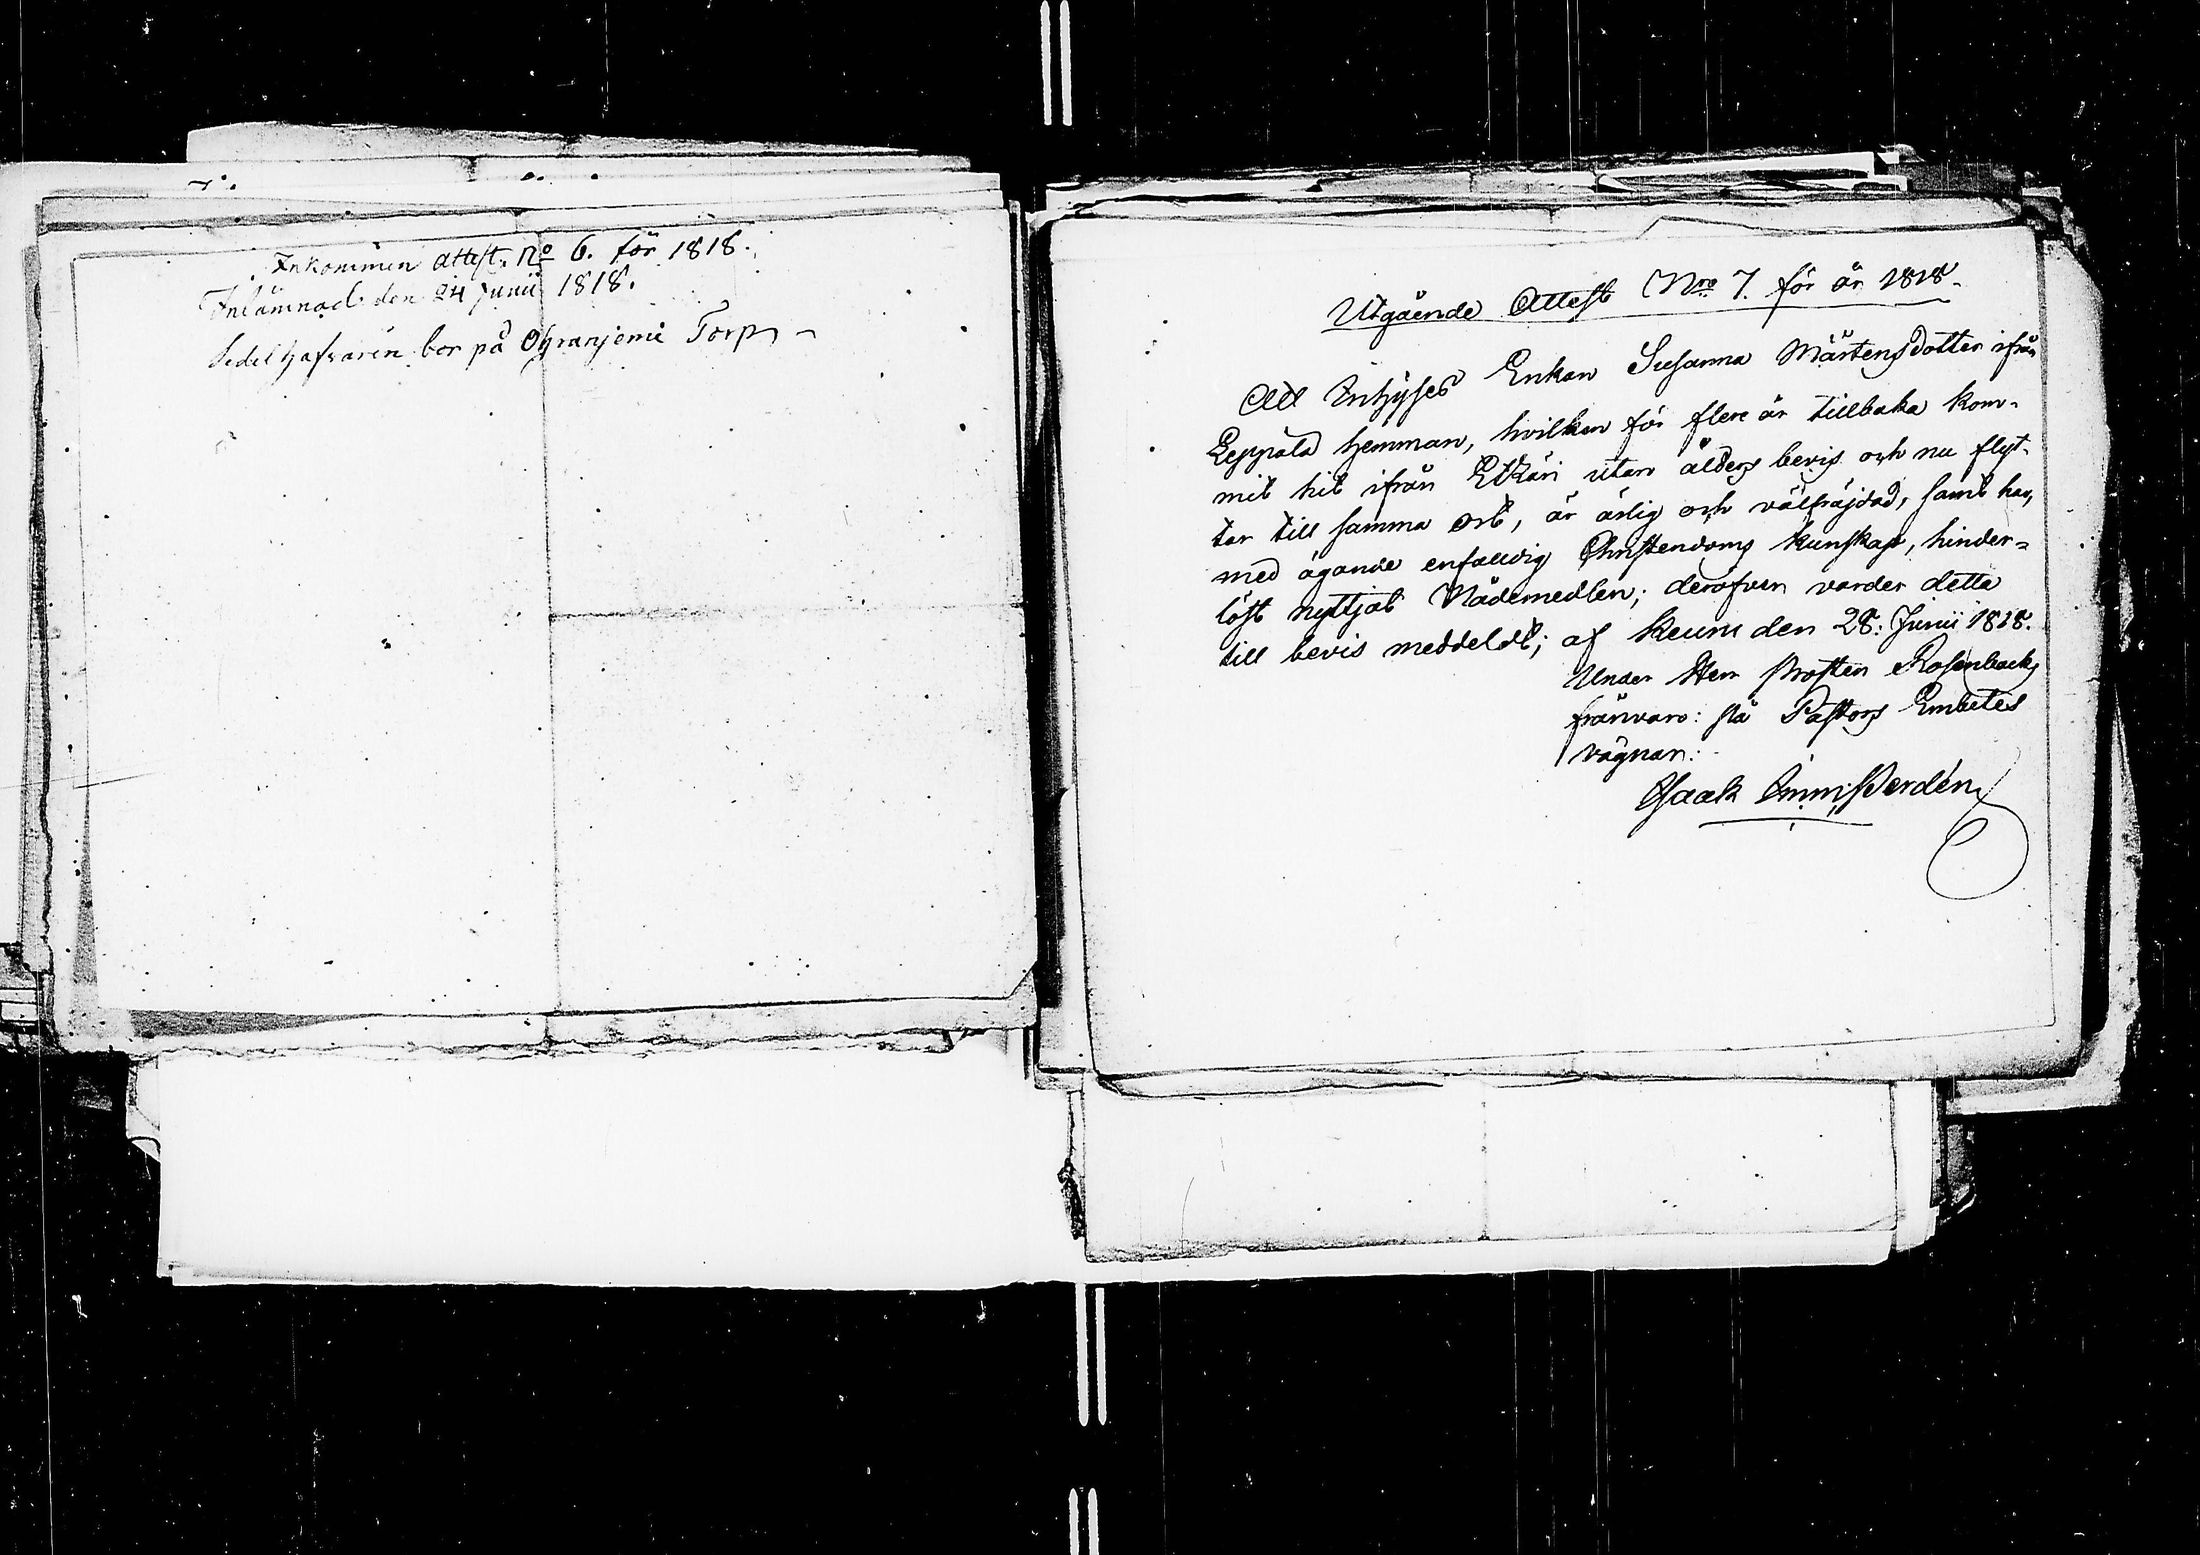 Inkommen attest. No 6. för 1818.
Inlämnad den 24 Junii 1818.
Sedelhafvaren bor på Ohranjemi Torp
Utgående Attest Nro 7. för år 1818.
Att Inhyses Enkan Susanna Mårtensdotter ifrån
Leppälä hemman, hvilken för flere år tillbaka kom-
mit hit ifrån Etzäri utan ålders bevis och nu flyt-
tar till samma ort, är ärlig och välfräjdad, samt har,
med ägande enfaldig Christendoms kunskap, hinder-
löst nyttjat Nådemedlen; deröfver varder detta
till bevis meddeldt; af Keuru den 28: Junii 1818.
Under Herr Prosten Rosenbacks
frånvaro: På Pastors Embetes
vägnar:
Isaak